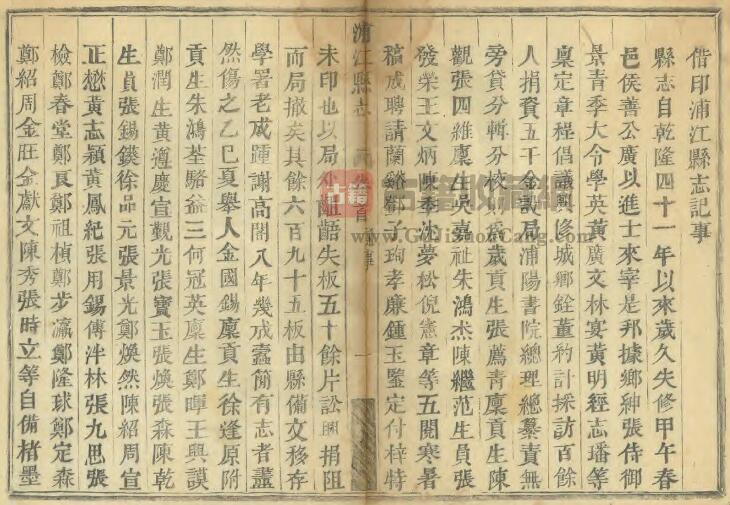 偕印浦江縣志記事
縣志自乾隆四十一年以來歲久失修甲午春
邑侯善公廣以進士來宰是邦據鄉紳張侍御
景青季大令學英黃廣文林宴黃明經志璠等
稟定章程倡議興修城鄉銓董約計採訪百餘
人捐資五千金設局浦陽書院總理總纂責無
旁貸分輯分校則爲歲貢生張薦青廩貢生陳
觀張四維廩生吳嘉祉朱鴻杰陳繼范生員張
發榮王文炳陳季沐夢松倪憲章等五閱寒暑
稿成聘請蘭谿鄧子珣孝廉鍾玉鑒定付梓特
浦江縣志
未印也以局外阻齬失板五十餘片訟興捐阻
而局撤矣其餘六百九十五板由縣備文移存
學署老成踵謝高閣八年幾成蠹簡有志者盡
然傷之乙巳夏舉人金國錫廩貢生徐逢原附
貢生朱鴻荃駱益三何冠英廩生鄭暉王興謨
鄭潤生黃遵慶宣觀光張寶玉張煥張森陳乾
生貟張錫鍈徐品元張景光鄭煥然陳紹周宣
正懋黃志穎黃鳳紀張用錫傅泮林張九思張
檢鄭春堂鄭良鄭祖楨鄭步瀛鄭隆球鄭定森
鄭紹周金旺金獻文陳秀張時立等自備楮墨
古籍
古籍收藏網
www.GuJiShouCang.com